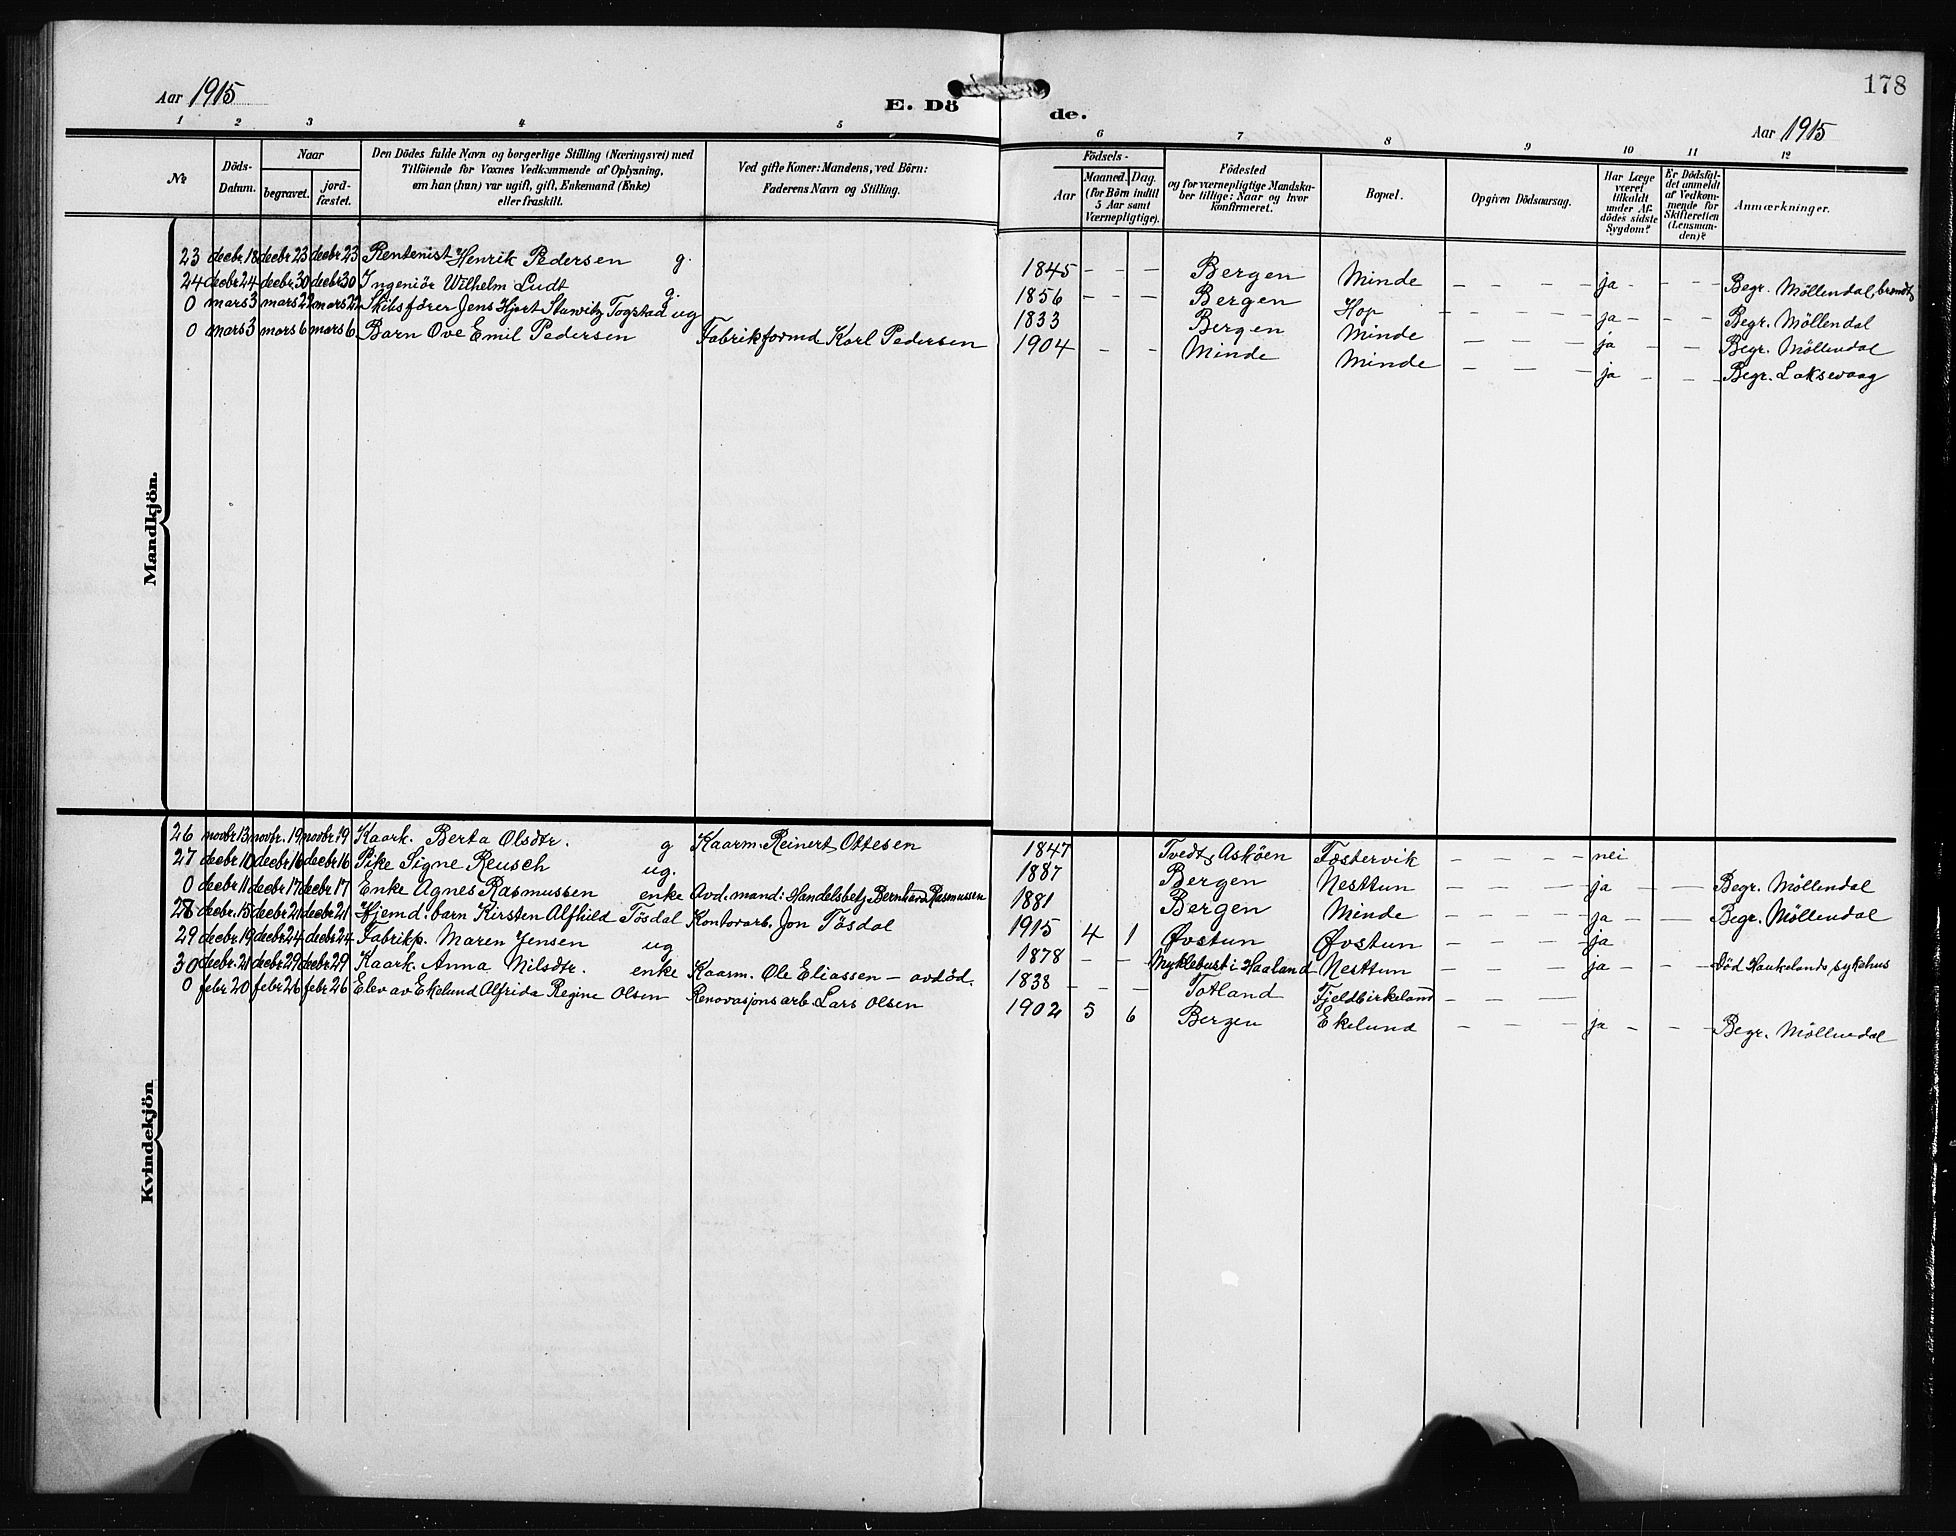 178
Aar 1915
E. Dö
de.
Aar 1915
1 2 3 4 5 6 7 8 9 10 11 12
№
Döds-
Datum.
Naar
begravet.
jord-
fæstet.
Den Dödes fulde Navn og borgerlige Stilling (Næringsvei) med
Tilföiende for Voxnes Vedkommende af Oplysning,
om han (hun) var ugift, gift, Enkemand (Enke)
eller fraskilt.
Ved gifte Koner: Mandens, ved Börn:
Faderens Navn og Stilling.
Födsels-
Aar
Maaned. Dag.
(for Börn indtil
5 Aar samt
Værnepligtige).
Födested
og for værnepligtige Mandska-
ber tillige: Naar og hvor
konfirmeret.
Bopæl.
Opgiven Dödsaarsag.
Har Læge
været
tilkaldt
under Af-
dödes sidste
Sygdom?
Er Dödsfal-
det anmeldt
af Vedkom-
mende for
Skifteretten
(Lensman-
den)?
Anmærkninger.
Mandkjön.
23 decbr. 18 decbr 23 decbr 23 Rentenist Henrik Pedersen g. 1845 - - - Bergen Minde - - - ja - - - Begr. Möllendal, brændt
24 decbr 24 decbr 30 decbr 30 Ingeniör Wilhelm Ludt g. 1856 - - - Bergen Hop - - - ja - - - Begr. Möllendal
0 mars 3 mars 22 mars 22 Skibsförer Jens Hjort Stuwitz Togstad ug 1833 Bergen Minde - - - ja - - Begr. Möllendal
0 mars 3 mars 6 mars 6 Barn Ove Emil Pedersen Fabrikformd Karl Pedersen 1904 - - Minde Minde - - - ja - - - Begr. Laksevaag
Kvindekjön
26 novbr 13 novbr. 19 novbr 19 Kaark. Berta Olsdtr. g Kaarm. Reinert Ottesen 1847 Tvedt, Asköen Fæstervik - - - nei
27 decbr 10 decbr 16 decbr 16 Pike Signe Reusch ug. 1887 Bergen Nesttun - - - ja - - - Begr. Möllendal
0 decbr 11 decbr 17 decbr 17 Enke Agnes Rasmussen enke Avd. mand: Handelsbetj. Bernhard Rasmussen 1881 Bergen Minde - - - ja - - - Begr. Möllendal
28 decbr. 15 decbr 21 decbr 21 Hjemd. barn Kirsten Alfhild Tösdal Kontorarb. Jon Tösdal 1915 4 1 Øvstun Øvstun - - - ja
29 decbr. 19 decbr 24 decbr 24 Fabrikp. Maren Jensen ug 1878 - - Myklebust i Haaland Nesttun - - - ja - - - Död Haukelands sykehus
30 decbr. 21 decbr 29 decbr 29 Kaark. Anna Nilsdtr. enke Kaarm. Ole Eliassen - avdöd. 1838 - - - Totland Fjeldbirkeland - - -
0 febr 20 febr 26 febr 26 Elev av Ekelund Alfrida Regine Olsen Renovasjonsarb. Lars Olsen 1902 5 6 Bergen Ekelund - - - ja - - - Begr. Möllendal